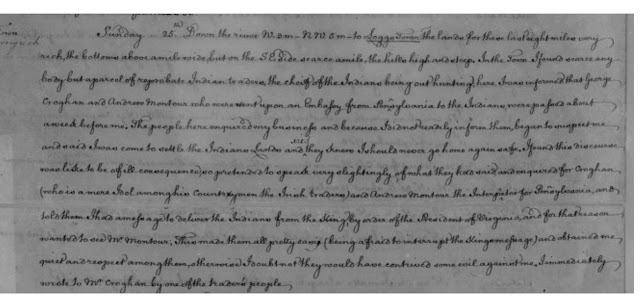 Sunday 25.th Down the river W 3 m - N W 5 m - to Loggs Town the lands for these last eight miles very
rich, the bottoms above a mile wide, but on the S E side scarce a mile, the hills high and steep. In the Town I found scarce any
body but a parcel of reprobate Indian traders, the chiefs of the Indians being out hunting; here I was informed that George
Croghan and Andrew Montour who were sent upon an Embassy from Pensylvania to the Indians, were passed about
a week before me, The people here enquired my business and because I did not readily inform them, began to suspect me
and said I was come to settle the Indians Lands and they knew I should never go home again safe, I found this discourse
was like to be of ill consequence, so pretended to speak very slightingly of what they had said and enquired for Croghan
(who is a meer Idol among his Countrymen the Irish traders) and Andrew Montour the Interpreter for Pensylvania, and
told them I had a message to deliver the Indians from the King, by order of the President of Virginia, and for that reason
wanted to see Mr. Montour, This made them all pretty easy (being afraid to interrupt the Kings message) and obtained me
quiet and respect among them, otherwise I doubt not they would have contrived some evil against me, I immediately
wrote to Mr. Croghan by one of the traders people